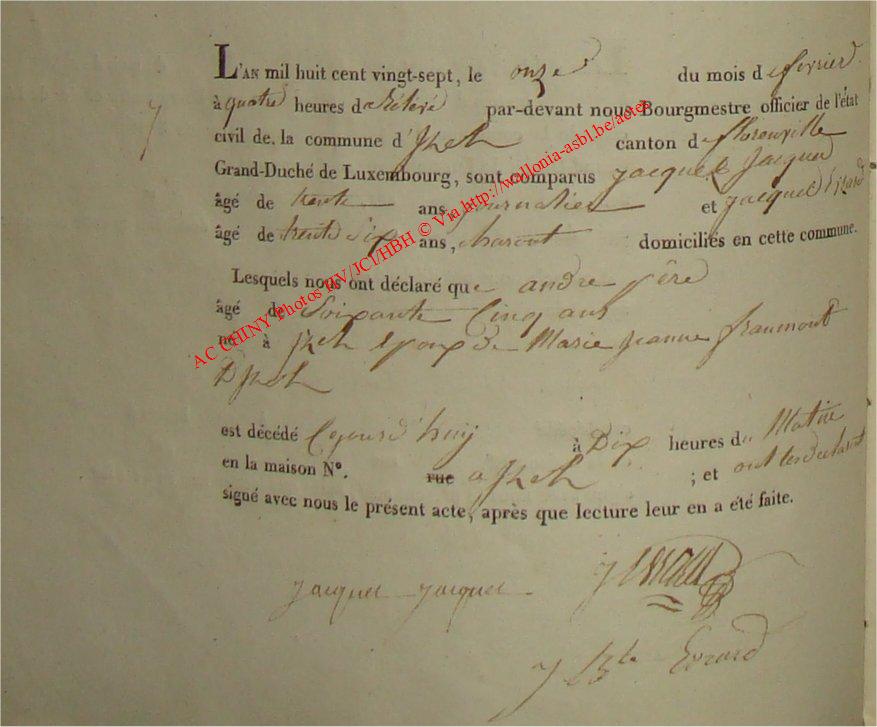 L'AN mil huit cent vingt-sept, le onze du mois de fevrier
7
à quatre heures de par-devant nous Bourgmestre officier de l'état
civil de. la commune d' Jzel canton de florenville
Grand-Duché de Luxembourg, sont comparus jacque jacque
âgé de trente ans journalier et jacque Evrard
âgé de trente six ans, charon domiciliés en cette commune.
Lesquels nous ont déclaré que andre père
âgé de soixante cinq ans
né à jzel epoux de Marie jeanne fraumont
D jzel
est décédé cejourd huy à Dix heures du Matin
en la maison No. rue a jzel ; et ont les declarant
signé avec nous le présent acte, après que lecture leur en a été faite.
jacque jacque
j Bte Evrard
AC CHINY Photos HV/JCI/HBH © Via http://wallonia-asbl.be/actes